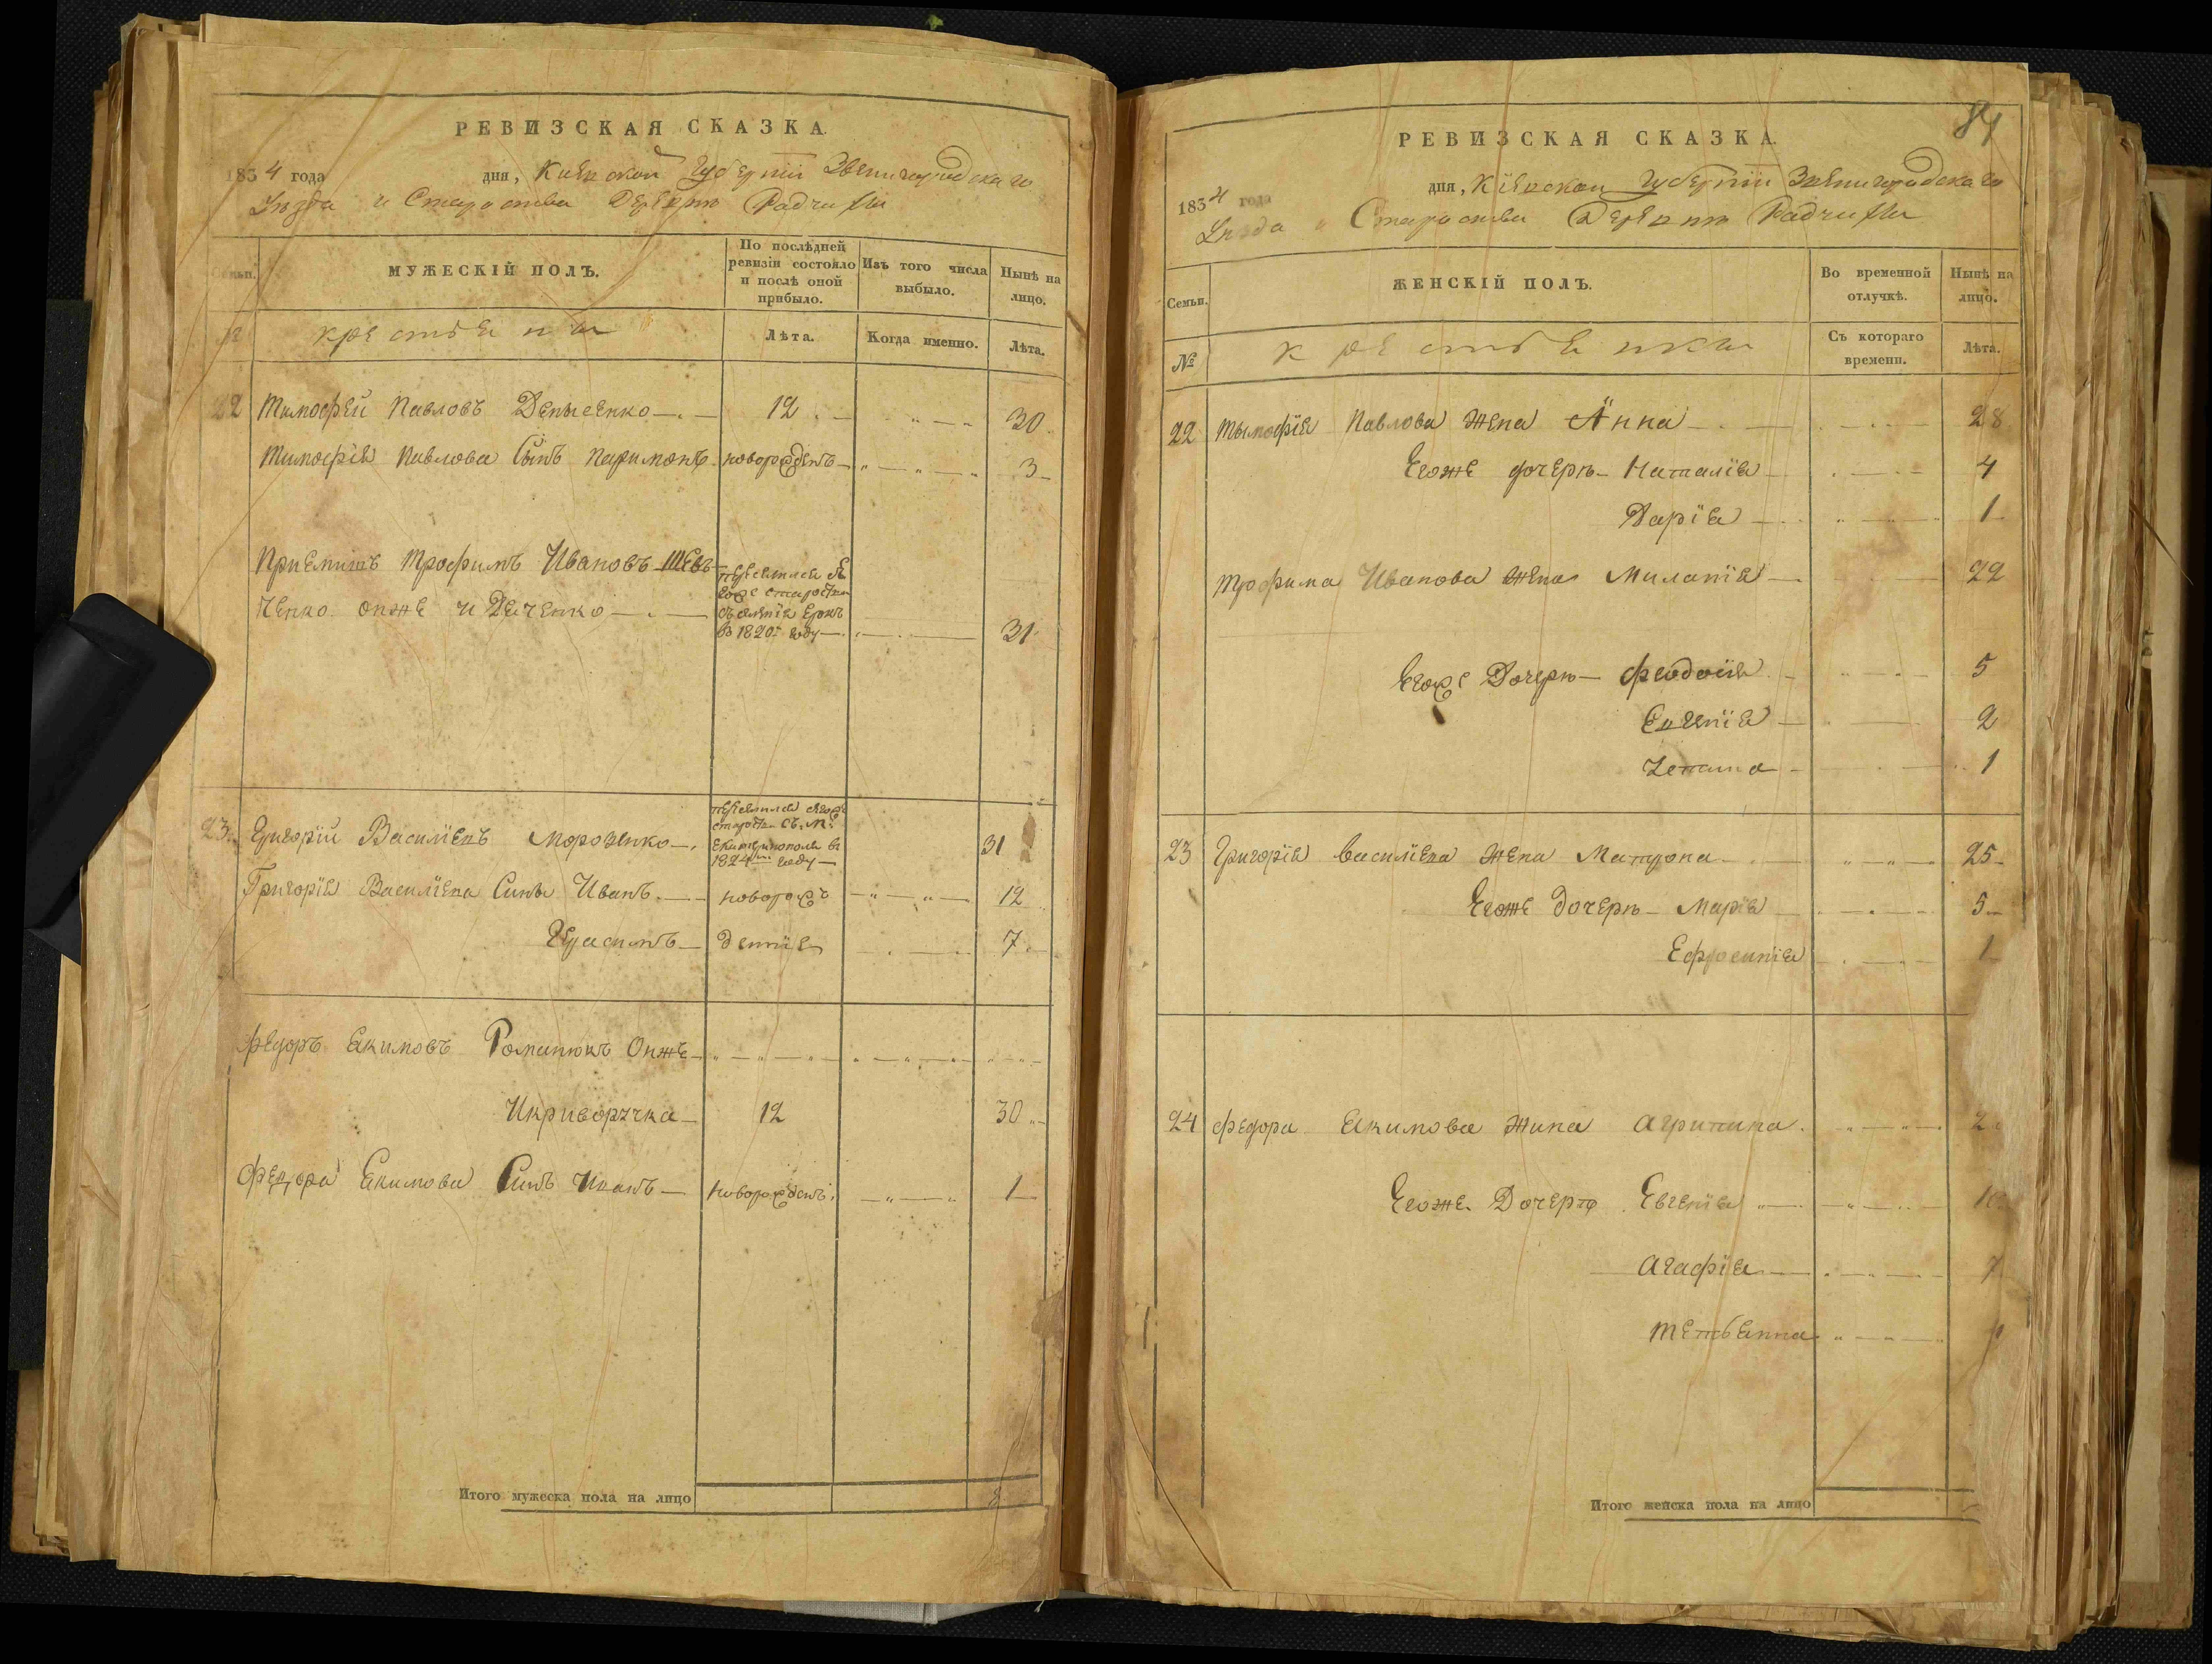 РЕВИЗСКАЯ СКАЗКА.
1834 года дня, Киевской Губернiи Звенигородскаго
Уѣзда и Староства Деревнѣ Радчихи
Семьи.
МУЖЕСКІЙ ПОЛЪ.
По послѣдней ревизіи состояло и послѣ оной прибыло.
Изъ того числа выбыло.
Нынѣ на лицо.
№
крестьяни
Лѣта.
Когда именно.
Лѣта.
22 Тимофей Павловъ Денысенко 12 30
Тимофея Павлова Сынъ Паримонъ новорожденъ 3
Приемишъ Трофимъ Ивановъ Шев
ченко онже и Дяченко
переселился
егоже староства
съ селенiя Ерокъ
въ 1820 году 31
23 Григорiй Василiевъ Морозенко 31
переселился
староства съ М:
Екатеринополя въ
1824 году
Григорiя Василiева Сины Иванъ новорож 12
Герасимъ денные 7
Федоръ Якимовъ Романюкъ Онже
Икриворучка 12 30
Федора Якимова Синъ Иванъ новорожденъ: 1
Итого мужеска пола на лицо 8
84
РЕВИЗСКАЯ СКАЗКА.
1834 года дня, Кіевской Губернiи Звенигородскаго
Уѣзда и Староства Деревнѣ Радчихи
Семьи.
ЖЕНСКІЙ ПОЛЪ.
Во временной отлучкѣ.
Нынѣ на лицо.
№
крестьянки
Съ котораго времени.
Лѣта.
22 Тымофiя Павлова жена Анна 28
Егоже дочерѣ Наталiя 4
Дарiя 1
Трофима Иванова жена Миланiя 22
Егоже Дочерѣ Феодосiя 5
Евгенiя 2
1
23 Григорiя Василiева жена Матрона 25
Егоже дочерѣ Марiя 5
Ефросинiя 1
24 Федора Якимова жина Агрипина
Егоже Дочерѣ Евгенiя 10
Агафiя 7
Тетьянна
Итого женска пола на лицо